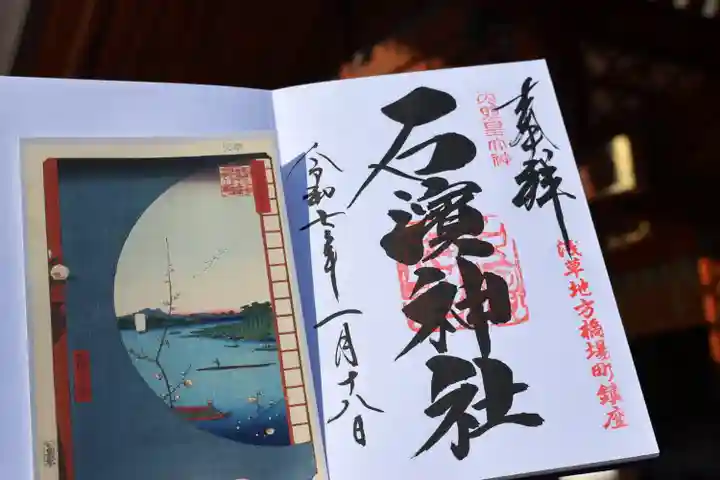 奉拝
浅草地方橋場町鎮座
石濱神社
令和七年一月十八日